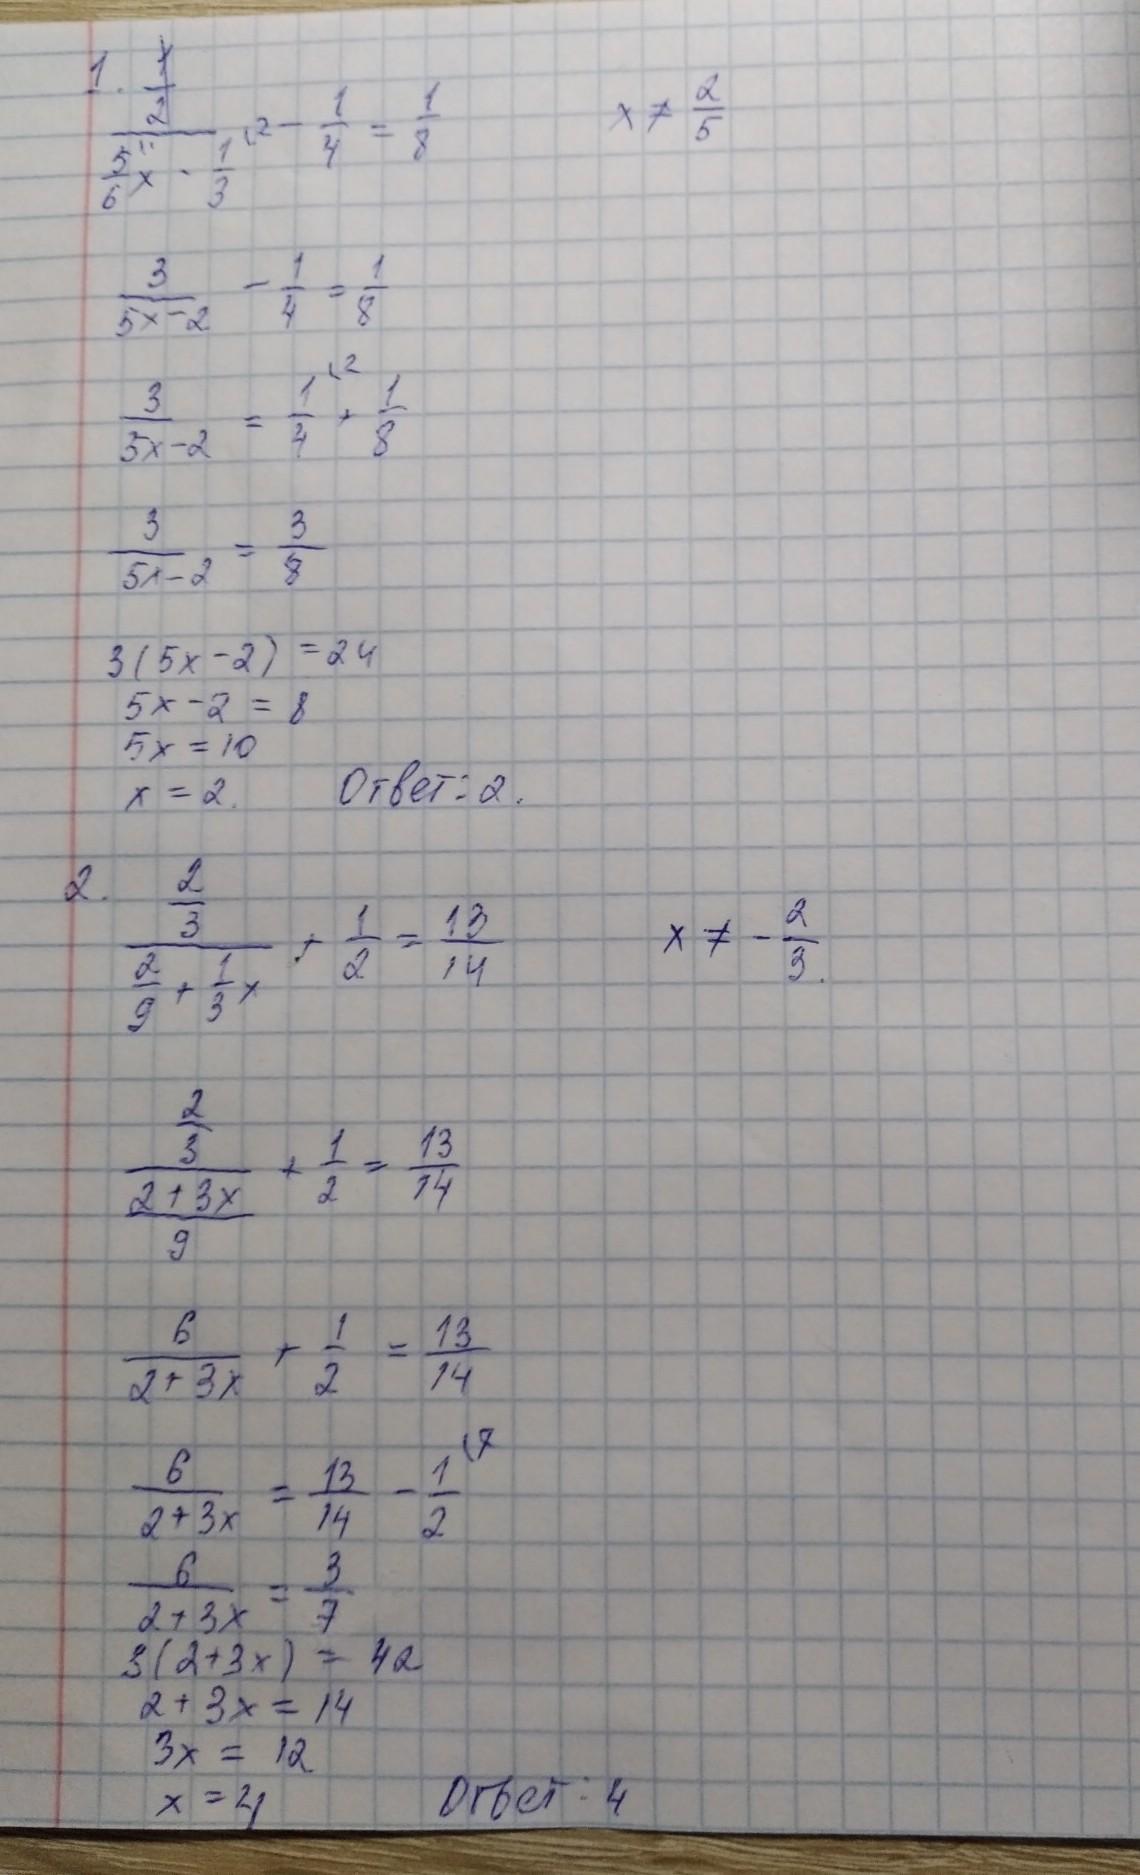 1. (1/2)/(5/6 x - 1/3) - 1/4 = 1/8 x ≠ 2/5
3/(5x-2) - 1/4 = 1/8
3/(5x-2) = 1/4 + 1/8
3/(5x-2) = 3/8
3(5x-2) = 24
5x-2 = 8
5x = 10
x = 2. Ответ: 2.
2. (2/3)/(2/9 + 1/3 x) + 1/2 = 13/14 x ≠ -2/3.
(2/3)/((2+3x)/9) + 1/2 = 13/14
6/(2+3x) + 1/2 = 13/14
6/(2+3x) = 13/14 - 1/2 (7
6/(2+3x) = 3/7
3(2+3x) = 42
2+3x = 14
3x = 12
x = 4 Ответ: 4